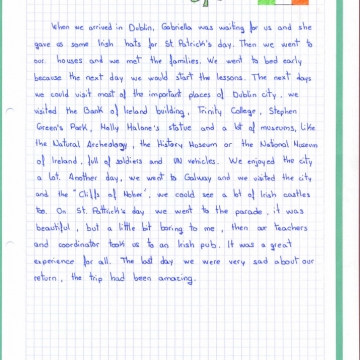 When we arrived in Dublin, Gabriella was waiting for us and she
gave us some Irish hats for St Patrick's day. Then we went to
our houses and we met the families. We went to bed early
because the next day we would start the lessons. The next days
we could visit most of the important places of Dublin city, we
visited the Bank of Ireland building, Trinity College, Stephen
Green's Park, Molly Malone's statue and a lot of museums, like
the Natural Archeology, the History Museum or the National Museum
of Ireland, full of soldiers and UN vehicles. We enjoyed the city
a lot. Another day, we went to Galway and we visited the city
and the "Cliffs of Moher", we could see a lot of Irish castles
too. On St. Pattrick's day we went to the parade, it was
beautiful, but a little bit boring to me, then our teachers
and coordinator took us to an Irish pub. It was a great
experience for all. The last day we were very sad about our
return, the trip had been amazing.